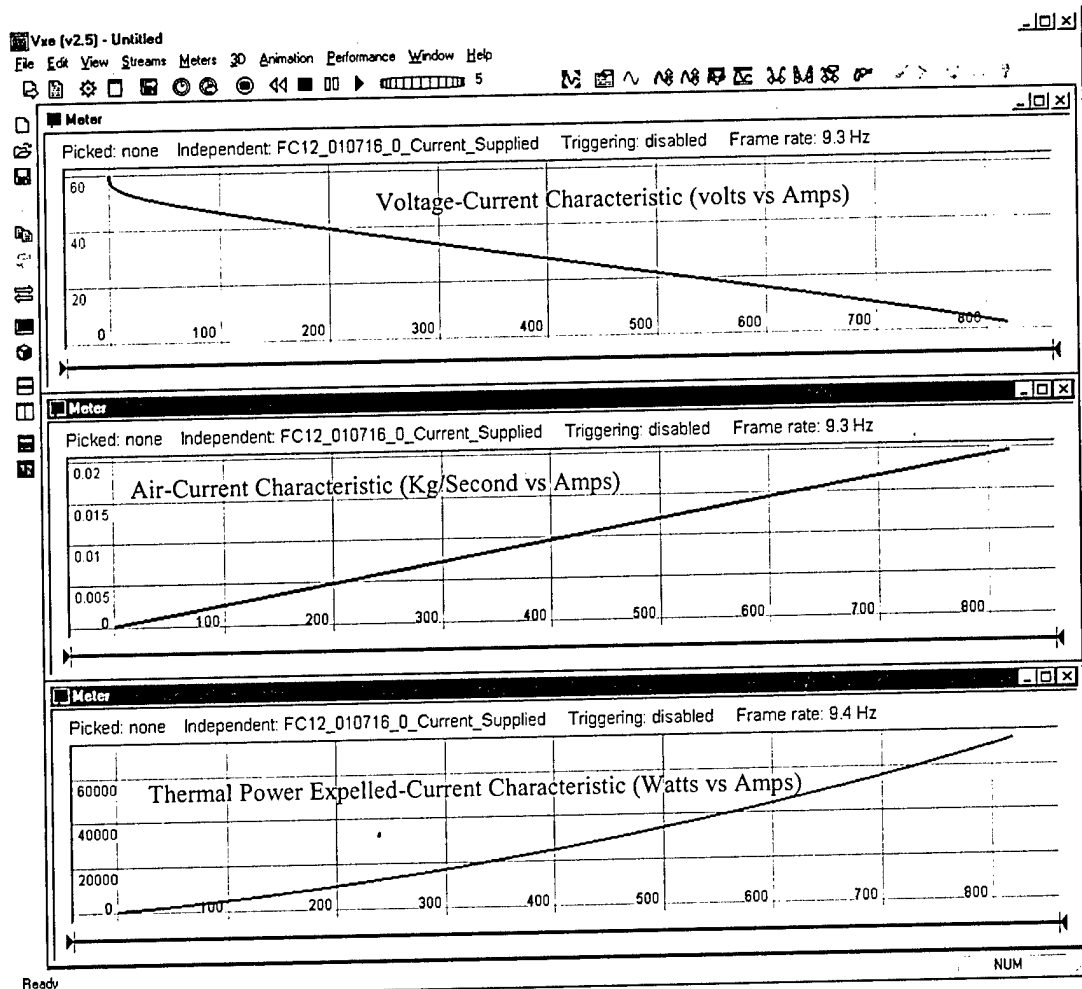 Vxe (v2.5) - Untitled
File Edit View Streams Meters 3D Animation Performance Window Help
5
Meter
Picked: none Independent: FC12_010716_0_Current_Supplied Triggering: disabled Frame rate: 9.3 Hz
Voltage-Current Characteristic (volts vs Amps)
60
40
20
0 100 200 300 400 500 600 700 800
Meter
Picked: none Independent: FC12_010716_0_Current_Supplied Triggering: disabled Frame rate: 9.3 Hz
Air-Current Characteristic (Kg/Second vs Amps)
0.02
0.015
0.01
0.005
0 100 200 300 400 500 600 700 800
Meter
Picked: none Independent: FC12_010716_0_Current_Supplied Triggering: disabled Frame rate: 9.4 Hz
Thermal Power Expelled-Current Characteristic (Watts vs Amps)
60000
40000
20000
0 100 200 300 400 500 600 700 800
NUM
Ready